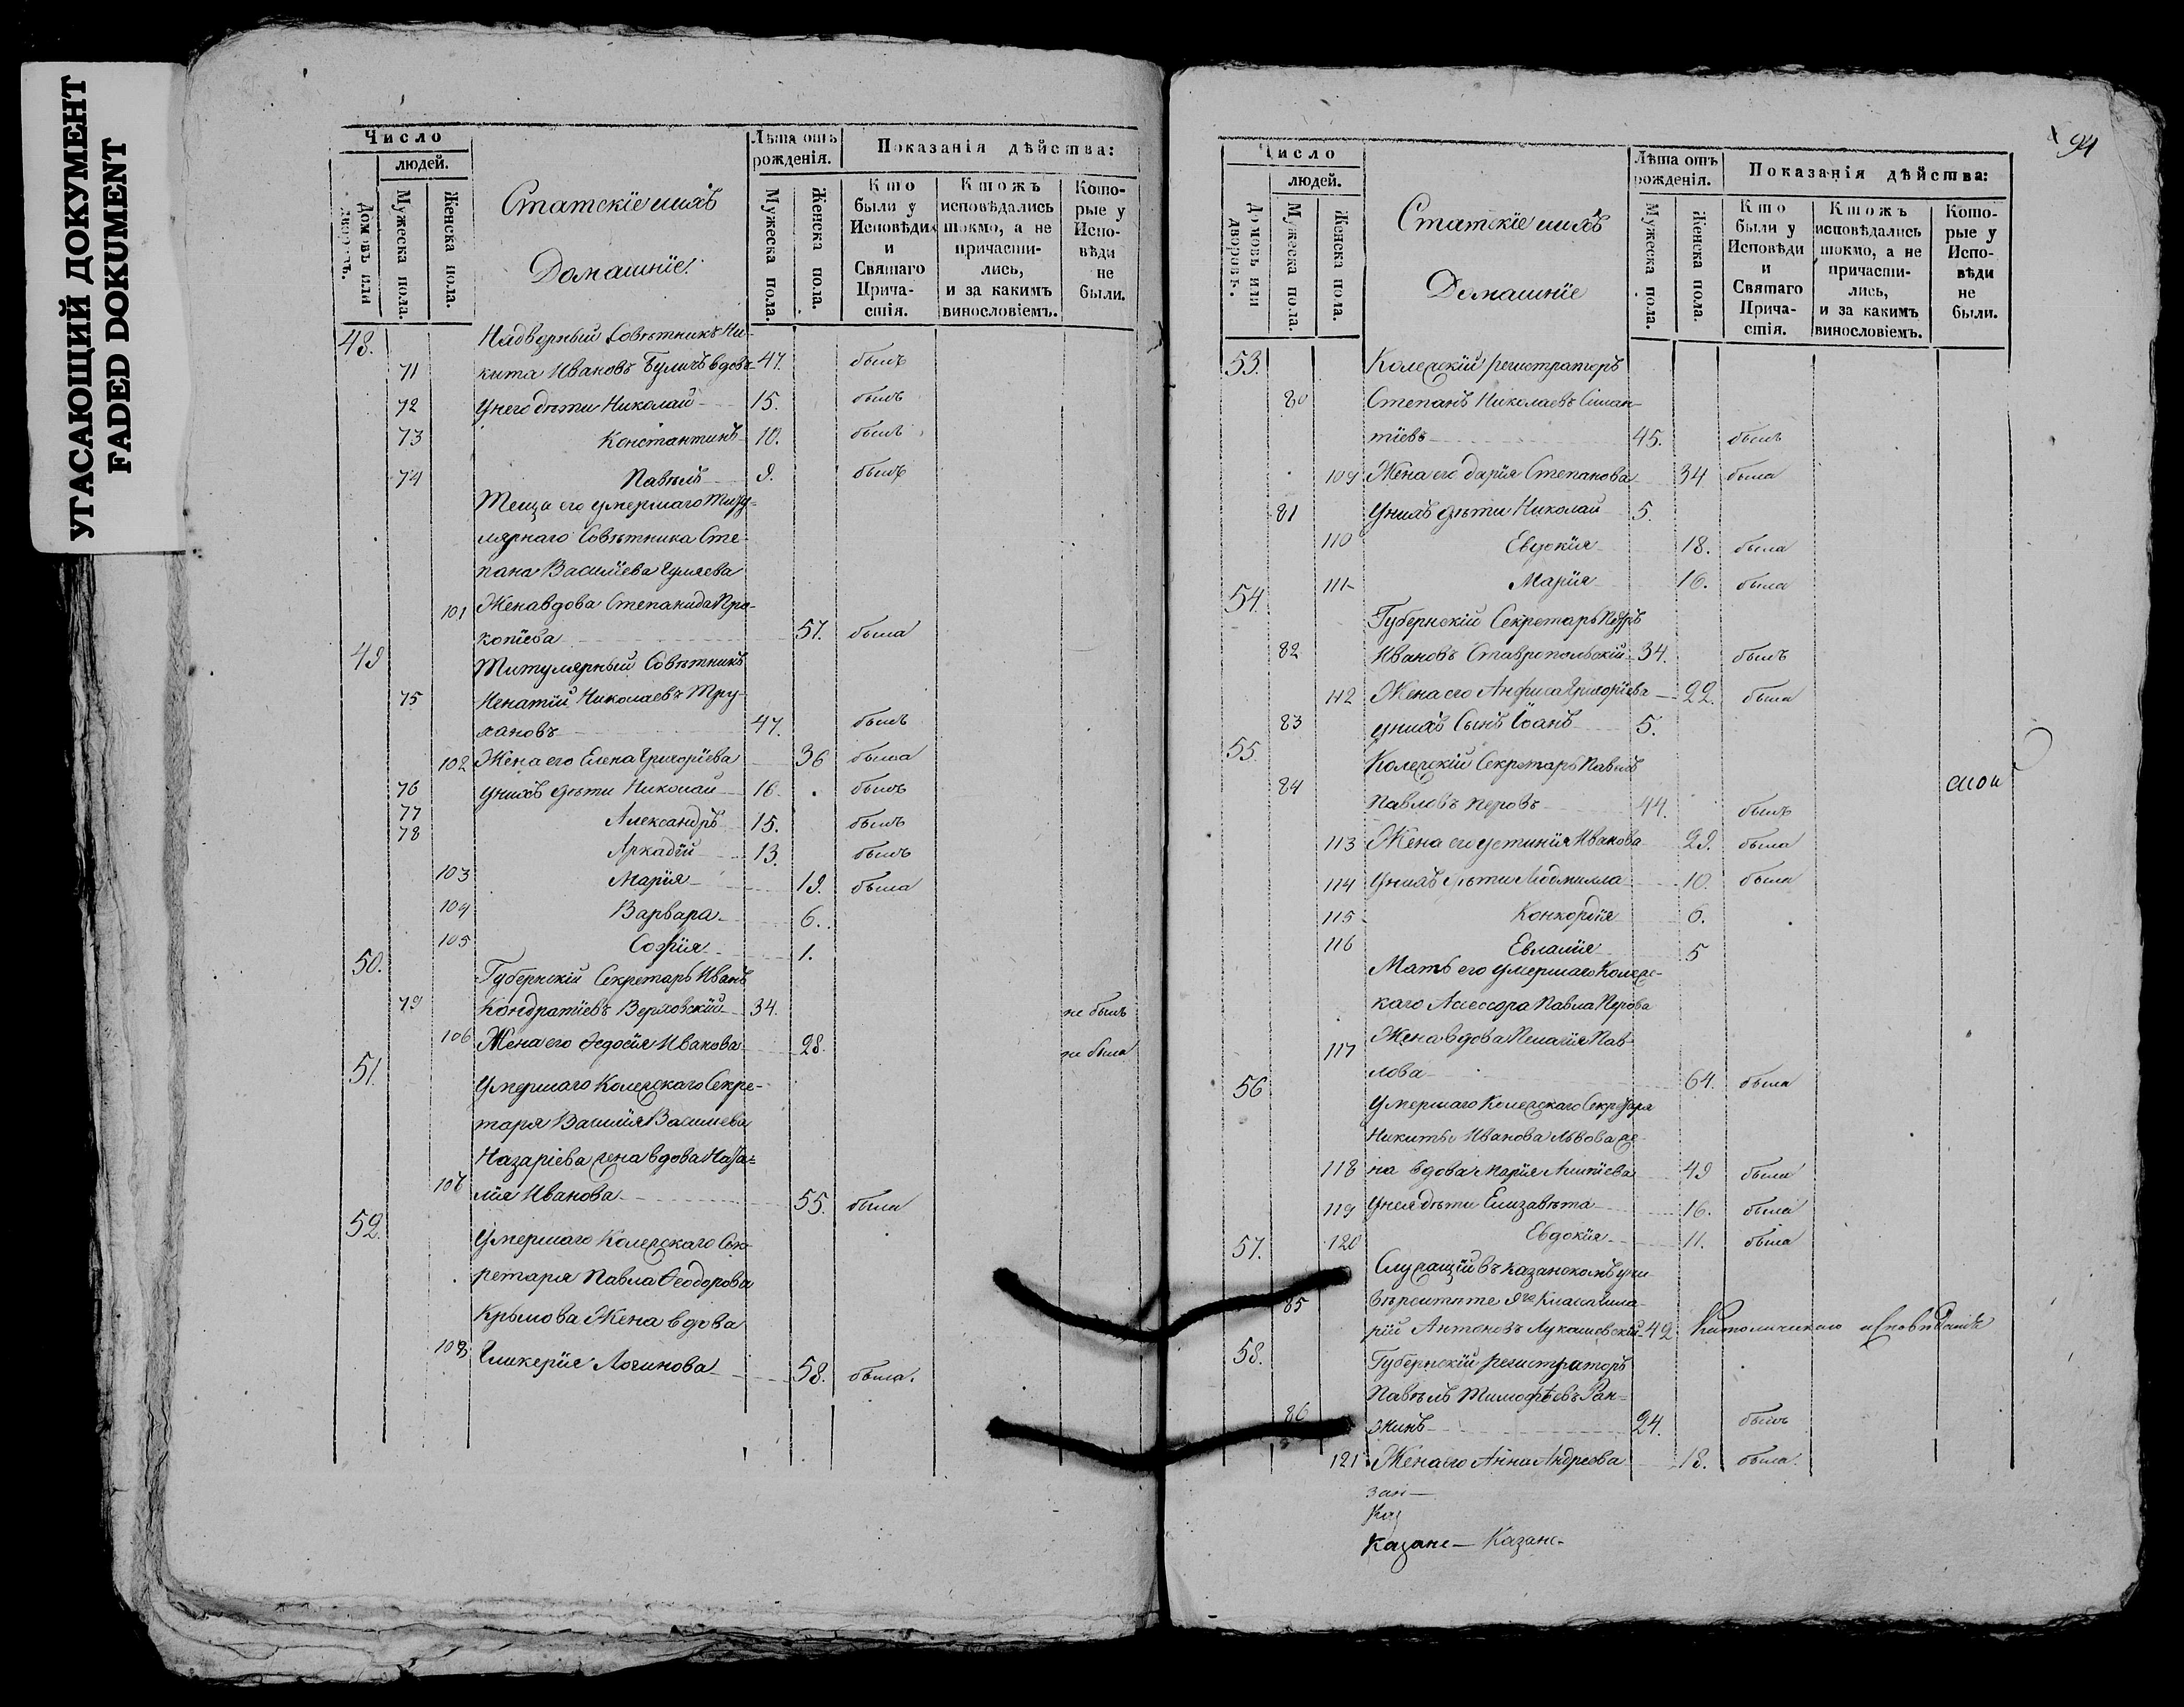 УГАСАЮЩИЙ ДОКУМЕНТ
FADED DOKUMENT
Число
людей.
Домовъ или дворовъ.
Мужеска пола.
Женска пола.
Статскіе ихъ
Домашніе:
Лѣта отъ рожденія.
Мужеска пола.
Женска пола.
Показанія дѣйства:
Кто были у Исповѣди и Святаго Причастія.
Ктожъ исповѣдались токмо, а не причастились, и за какимъ винословіемъ.
Которые у Исповѣди не были.
48. Надворный Совѣтникъ Ни-
71 кита Ивановъ Буличь вдовъ 47. былъ
72 У него дѣти Николай 15. былъ
73 Константинъ 10. былъ
74 Павелъ 9. былъ
Теща его умершаго Титу-
лярнаго Совѣтника Сте-
пана Васильева
101 Жена вдова Степанида Про-
копіева 57. была
49 Титулярный Совѣтникъ
75 Игнатій Николаевъ Тру-
хановъ 47. былъ
102 Жена его Елена Григорїева 36 была
76 У нихъ дѣти Николай 16. былъ
77 Александръ 15. былъ
78 Аркадїй 13. былъ
103 Марїя 19. была
104 Варвара 6.
105 Софїя 1.
50. Губернскій Секретарь Иванъ
79 Кондратїевъ Верховскїй 34. не былъ
106 Жена его Ѳедосїя Иванова 28. не была
51. Умершаго Колежскаго Секре-
таря Василїя Васильева
Назаріева жена вдова Ната-
107 лїя Иванова 55. была
52. Умершаго Колежскаго Сек-
ретаря Павла Ѳеодорова
Крылова Жена вдова
108 Гликерїя Логинова 58. была.
94
Число
людей.
Домовъ или дворовъ.
Мужеска пола.
Женска пола.
Статскіе ихъ
Домашніе
Лѣта отъ рожденія.
Мужеска пола.
Женска пола.
Показанія дѣйства:
Кто были у Исповѣди и Святаго Причастія.
Ктожъ исповѣдались токмо, а не причастились, и за какимъ винословіемъ.
Которые у Исповѣди не были.
53. Колежскій регистраторъ
80 Степанъ Николаевъ
тїевъ 45. былъ
109 Жена его Дарїя Степанова 34 была
81 У нихъ дѣти Николай 5.
110 Евдокїя 18. была
111 Марїя 16. была
54. Губернскій Секретарь Петръ
82 Ивановъ Ставропольскій 34. былъ
112 Жена его Анфиса Григорїева 22. была
83 у нихъ Сынъ Іоанъ 5.
55. Колежскій Секретарь Павелъ
84 Павловъ Перовъ 44. былъ
113 Жена его Устинїя Иванова 29. была
114 У нихъ дѣти Людмилла 10. была
115 Конкордїя 6.
116 Евлалїя 5
Мать его умершаго Колежс-
каго Ассессора Павла Перова
117 Жена вдова Пелагїя Пав-
лова 64. была
56 Умершаго Колежскаго Секретаря
Никиты Иванова Львова же-
118 на вдова Марїя 49 была
119 У нея дѣти Елизавета 16. была
120 Евдокїя 11. была
57. Служащїй въ казанскомъ уни-
85 верситете 9го Класса
рїй Антоновъ Лукашевскїй 42 Католическаго исповѣданїя
58. Губернскїй регистраторъ
Павелъ Тимофѣевъ Ран-
86 жинъ 24. былъ
121 Жена его Анна Андреева 18. была.
зан—
Каз
Казанс— Казанс-